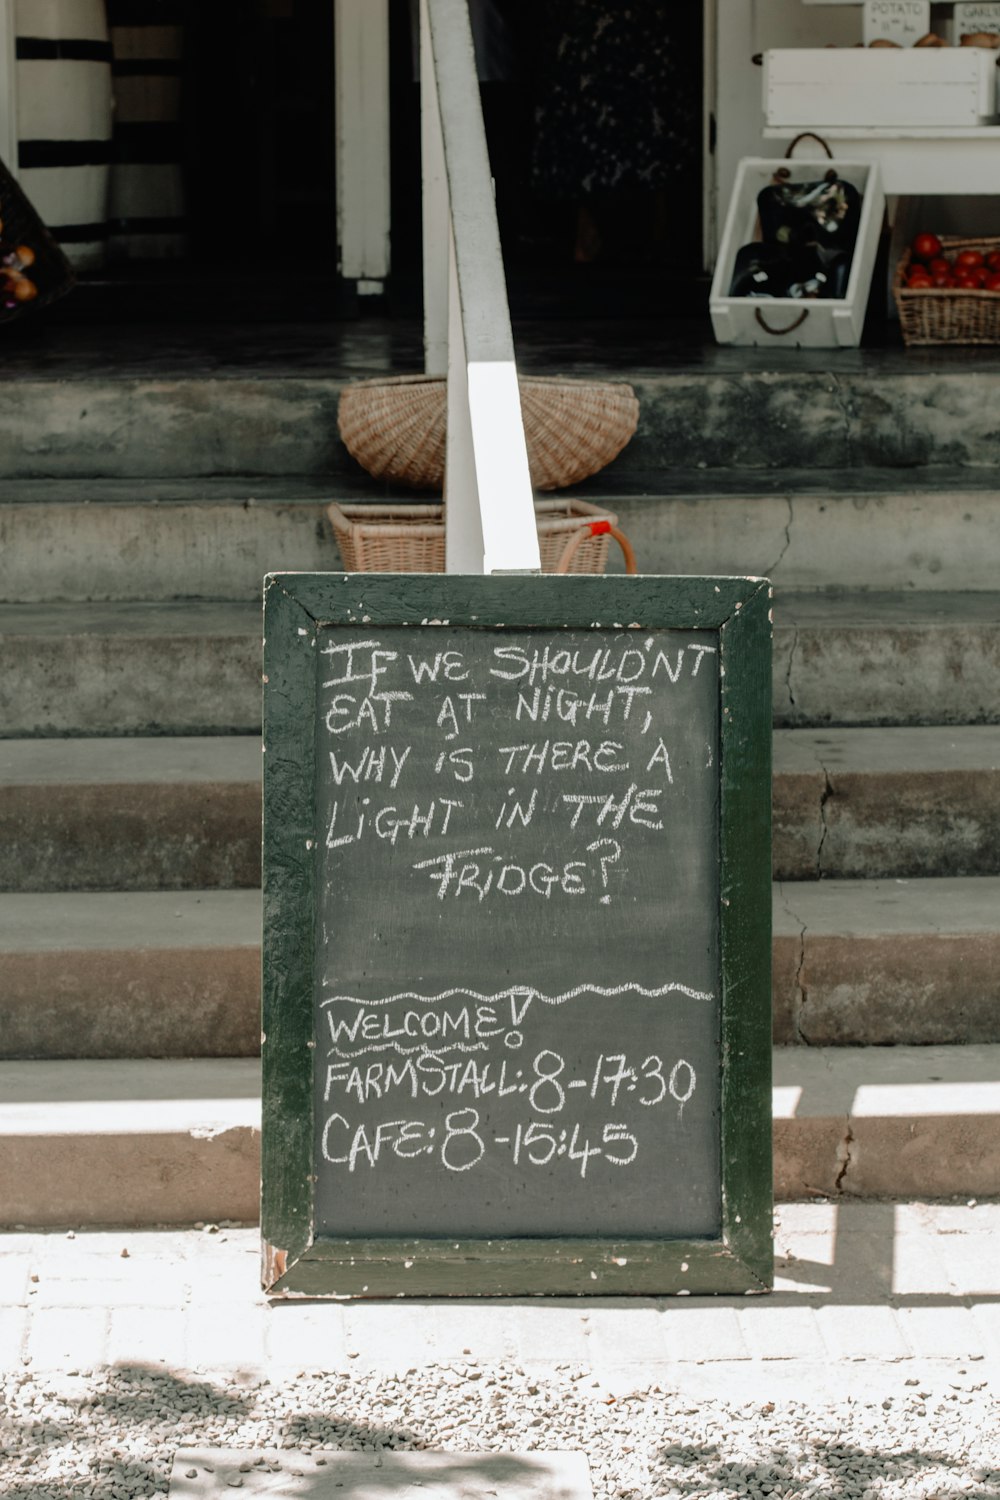 POTATO
GARLIC
IF WE SHOULDN'T
EAT AT NIGHT,
WHY IS THERE A
LIGHT IN THE
FRIDGE?
WELCOME!
FARMSTALL: 8-17:30
CAFE: 8-15:45